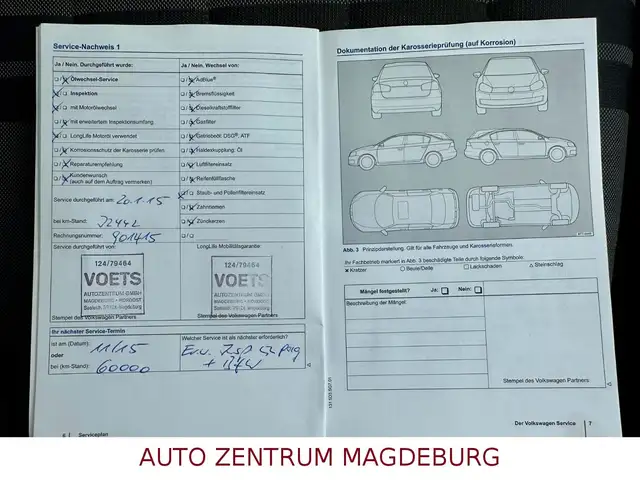 Service-Nachweis 1
Ja / Nein. Durchgeführt wurde:
Ja / Nein. Wechsel von:
Ölwechsel-Service
AdBlue®
Inspektion
Bremsflüssigkeit
mit Motorölwechsel
Dieselkraftstofffilter
mit erweitertem Inspektionsumfang
Gasfilter
LongLife Motoröl verwendet
Getriebeöl: DSG®, ATF
Korrosionsschutz der Karosserie prüfen
Haldexkupplung: Öl
Reparaturempfehlung
Luftfiltereinsatz
Kundenwunsch
(auch auf dem Auftrag vermerken)
Reifenfüllflasche
Staub- und Pollenfiltereinsatz
Service durchgeführt am: 20.1.15
Zahnriemen
bei km-Stand:
Zündkerzen
Rechnungsnummer: 901415
Service durchgeführt von:
LongLife Mobilitätsgarantie:
124/79464
VOETS
AUTOZENTRUM GMBH
124/79464
VOETS
AUTOZENTRUM GMBH
Stempel des Volkswagen Partners
Stempel des Volkswagen Partners
Ihr nächster Service-Termin
ist am (Datum): 11/15
oder
bei (km-Stand): 60000
Welcher Service ist als nächster erforderlich?
6 | Serviceplan
Dokumentation der Karosserieprüfung (auf Korrosion)
Abb. 3 Prinzipdarstellung. Gilt für alle Fahrzeuge und Karosserieformen.
Ihr Fachbetrieb markiert in Abb. 3 beschädigte Teile durch folgende Symbole:
x Kratzer ○ Beule/Delle □ Lackschaden △ Steinschlag
Mängel festgestellt? Ja: Nein:
Beschreibung der Mängel:
Stempel des Volkswagen Partners
Der Volkswagen Service | 7
AUTO ZENTRUM MAGDEBURG